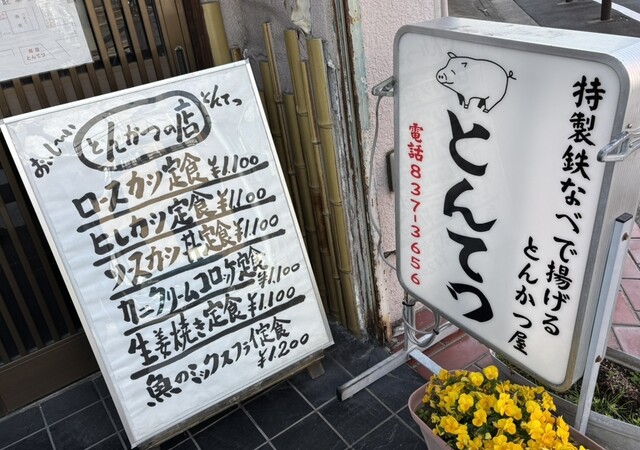 おいしい
とんかつの店
とんてつ
ロースカツ定食 ¥1.100
ヒレカツ定食 ¥1.100
ソースカツ丼定食 ¥1.100
カニクリームコロッケ定食 ¥1.100
生姜焼き定食 ¥1.100
魚のミックスフライ定食
¥1.200
特製鉄なべで揚げる
とんかつ屋
とんてつ
電話837-3656